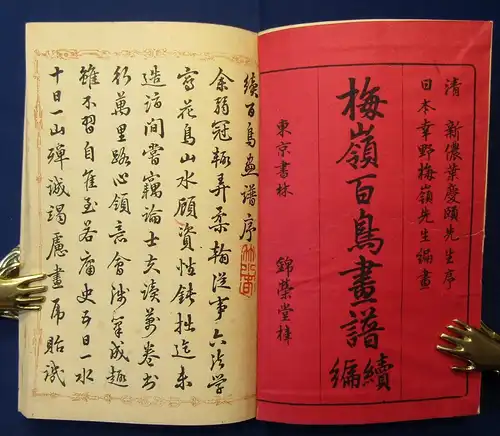 清 新儂葉慶頤先生序
日本幸野楳嶺先生編画
梅嶺百鳥畫譜
續編
東京書林 錦榮堂梓
續百鳥画譜序
余弱冠輒弄柔翰從事六法學
寫花鳥山水顧資性鈍拙迄未
造詣間嘗竊論士夫讀萬卷書
行萬里路心領意會涉筆成趣
雖不習自佳至若庸史五日一水
十日一山殫誠竭慮畫虎貽譏